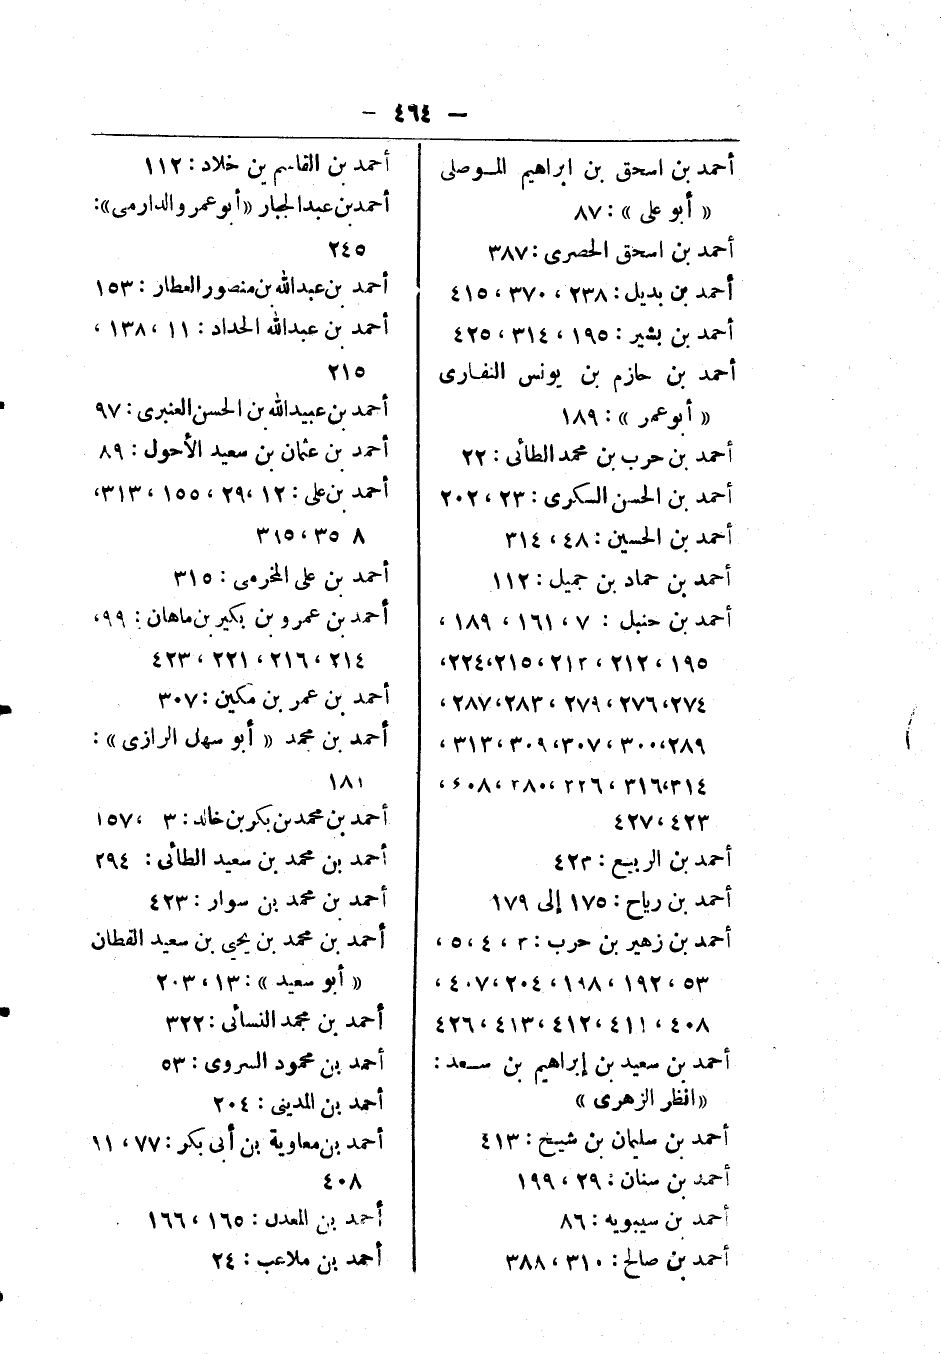 — ٤٦٤ —
أحمد بن اسحق بن ابراهيم الموصلى
« أبو على » : ٨٧
أحمد بن اسحق الحصرى : ٣٨٧
أحمد بن بديل : ٢٣٨ ، ٣٧٠ ، ٤١٥
أحمد بن بشير : ١٩٥ ، ٣١٤ ، ٤٢٥
أحمد بن حازم بن يونس النفارى
« أبو عمر » : ١٨٩
أحمد بن حرب بن محمد الطائى : ٢٢
أحمد بن الحسن السكرى : ٢٣ ، ٢٠٢
أحمد بن الحسين : ٤٨ ، ٣١٤
أحمد بن حماد بن جميل : ١١٢
أحمد بن حنبل : ٧ ، ١٦١ ، ١٨٩ ،
١٩٥ ، ٢١٢ ، ٢١٢ ، ٢١٥ ، ٢٢٤ ،
٢٧٤ ، ٢٧٦ ، ٢٧٩ ، ٢٨٣ ، ٢٨٧ ،
٢٨٩ ، ٣٠٠ ، ٣٠٧ ، ٣٠٩ ، ٣١٣ ،
٣١٤ ، ٣١٦ ،
٤٢٣ ، ٤٢٧
أحمد بن الربيع : ٤٢٣
أحمد بن رياح : ١٧٥ إلى ١٧٩
أحمد بن زهير بن حرب : ٢ ، ٤ ، ٥ ،
٥٣ ، ١٩٢ ، ١٩٨ ، ٢٠٤ ، ٤٠٧ ،
٤٠٨ ، ٤١١ ، ٤١٢ ، ٤١٣ ، ٤٢٦
أحمد بن سعيد بن إبراهيم بن سعد :
« انظر الزهرى »
أحمد بن سليمان بن شيخ : ٤١٣
أحمد بن سنان : ٢٩ ، ١٩٩
أحمد بن سيبويه : ٨٦
أحمد بن صالح : ٣١٠ ، ٣٨٨
أحمد بن القاسم بن خلاد : ١١٢
أحمد بن عبد الجبار « أبو عمر و الدارمى » :
٢٤٥
أحمد بن عبدالله بن منصور العطار : ١٥٣
أحمد بن عبدالله الحداد : ١١ ، ١٣٨ ،
٢١٥
أحمد بن عبيدالله بن الحسن العنبرى : ٩٧
أحمد بن عثمان بن سعيد الأحول : ٨٩
أحمد بن على : ١٢ ، ٢٩ ، ١٥٥ ، ٣١٣ ،
٣١٥ ، ٣٥ ٨
أحمد بن على المخرمى : ٣١٥
أحمد بن عمرو بن بكير بن ماهان : ٩٩ ،
٢١٤ ، ٢١٦ ، ٢٢١ ، ٤٢٣
أحمد بن عمر بن مكين : ٣٠٧
أحمد بن محمد « أبو سهل الرازى » :
١٨١
أحمد بن محمد بن بكر بن خالد : ٣ ، ١٥٧
أحمد بن محمد بن سعيد الطائى : ٢٩٤
أحمد بن محمد بن سوار : ٤٢٣
أحمد بن محمد بن يحيى بن سعيد القطان
« أبو سعيد » : ١٣ ، ٢٠٣
أحمد بن محمد النسائى : ٣٢٢
أحمد بن محمود السروى : ٥٣
أحمد بن المدينى : ٢٠٤
أحمد بن معاوية بن أبى بكر : ٧٧ ، ٩١
٤٠٨
أحمد بن المعدل : ١٦٥ ، ١٦٦
أحمد بن ملاعب : ٢٤